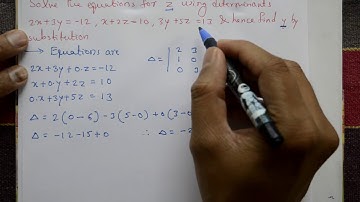 Solve the equations for z using determinants
2x+3y=-12, x+2z=10, 3y+5z=13 & hence find y by
substitution
→ Equations are
2x+3y+0.z=-12
x+0.y+2z=10
0.x+3y+5z=13
Δ= | 2 3
1 0
0 3
Δ=2(0-6)-3(5-0)+0(3-0
Δ=-12-15+0 ∴ Δ=-2